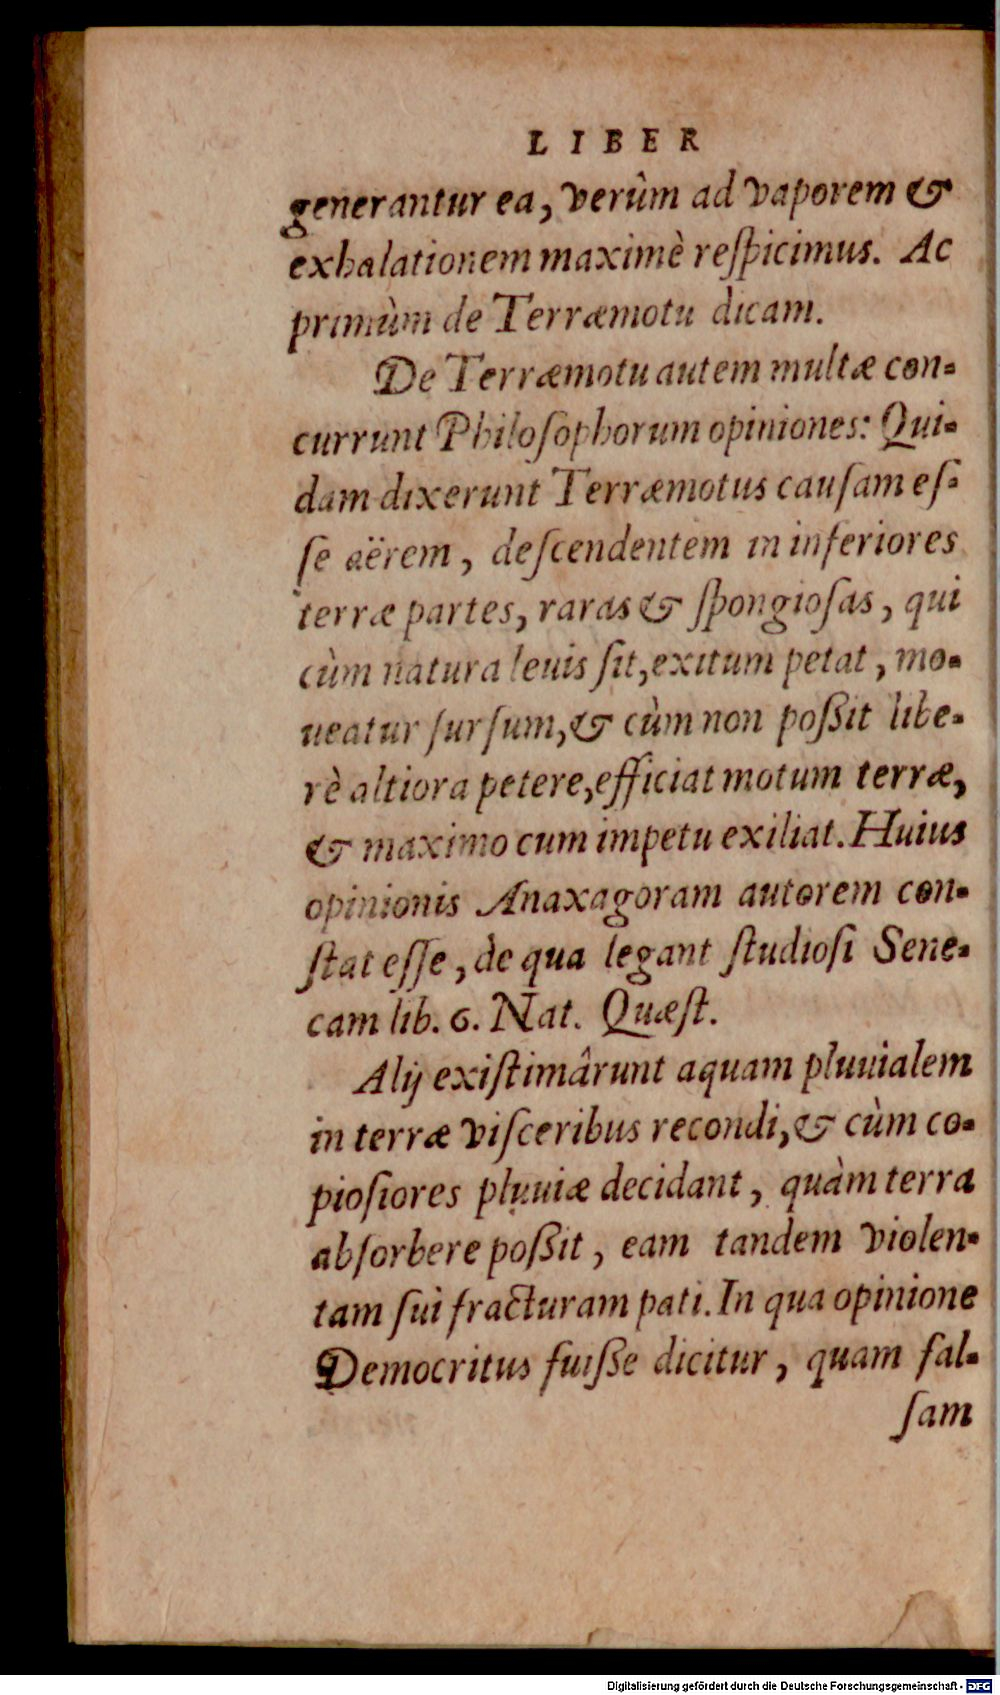 LIBER
generantur ea, verùm ad vaporem &
exhalationem maximè reſpicimus. Ac
primùm de Terræmotu dicam.
De Terræmotu autem multæ con-
currunt Philoſophorum opiniones: Qui-
dam dixerunt Terræmotus cauſam eſ-
ſe aërem, deſcendentem in inferiores
terræ partes, raras & ſpongioſas, qui
cùm natura leuis ſit, exitum petat, mo-
ueatur ſurſum, & cùm non poßit libe-
rè altiora petere, efficiat motum terræ,
& maximo cum impetu exiliat. Huius
opinionis Anaxagoram autorem con-
ſtat eſſe, de qua legant ſtudioſi Sene-
cam lib. 6. Nat. Quæſt.
Alij exiſtimârunt aquam pluuialem
in terræ viſceribus recondi, & cùm co-
pioſiores pluuiæ decidant, quàm terra
abſorbere poßit, eam tandem violen-
tam ſui fracturam pati. In qua opinione
Democritus fuiſſe dicitur, quam fal-
ſam
Digitalisierung gefördert durch die Deutsche Forschungsgemeinschaft - DFG